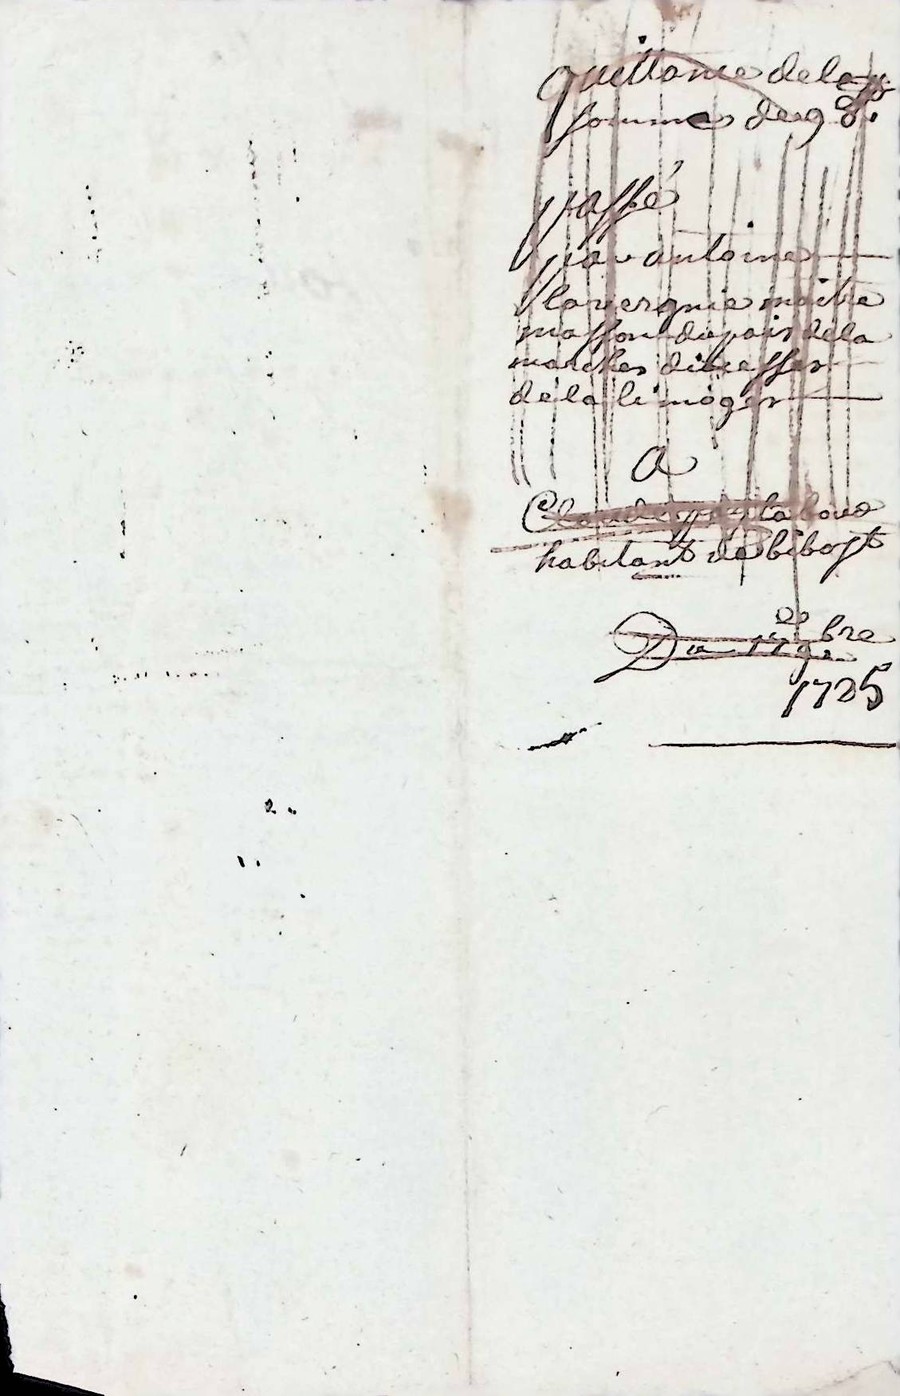 quittance de la
somme de 98
passé
par antoine
lavergnie maitre
masson du pais de la
marches diocesser
de la limoger
a
Claude
habitant de bibost
Du 17 9bre
1725